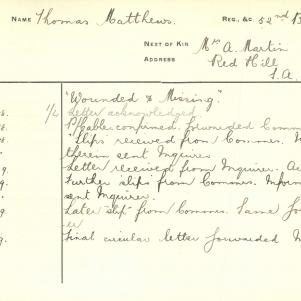 NAME Thomas Matthews. REG, &C. 52nd B
NEXT OF KIN Mr A. Martin
ADDRESS Red Hill
S.A.
"Wounded & Missing."
1/2 Letter acknowledged
P/Cable confirmed. forwarded Commrs
"Slips" received from Commrs.
therein sent Inquirer.
Letter received from Inquirer.
Further slips from Commrs. Infor
sent Inquirer.
Later "slip" from Commrs. Same for
er
Final circular letter forwarded